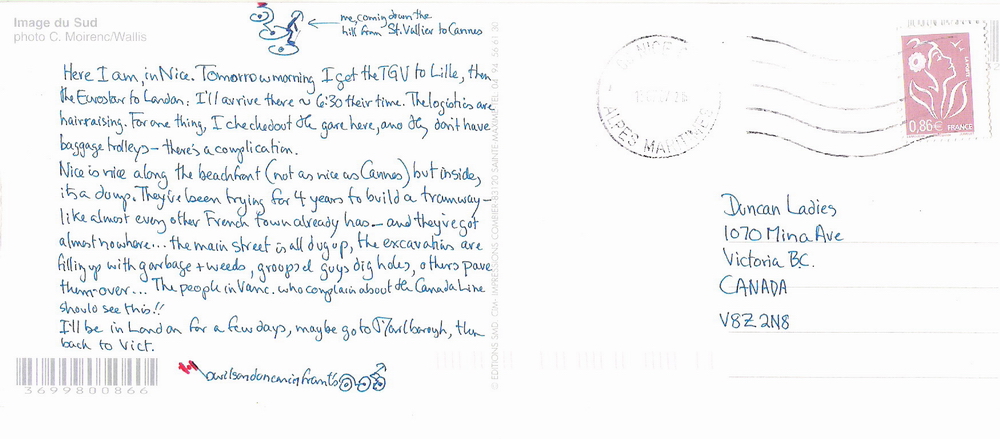 Image du Sud
photo C. Moirenc/Wallis
me, coming down the
hill from St. Vallier to Cannes
Here I am, in Nice. Tomorrow morning I get the TGV to Lille, then
the Eurostar to London: I'll arrive there ~ 6:30 their time. The logistics are
hairraising. For one thing, I checked out the gare here, and they don't have
baggage trolleys – there's a complication.
Nice is nice along the beachfront (not as nice as Cannes) but inside,
its a dump. They've been trying for 4 years to build a tramway –
like almost every other French town already has – and they've got
almost nowhere... the main street is all dug up, the excavations are
filling up with garbage + weeds, groups of guys dig holes, others pave
them over... The people in Vanc. who complain about the Canada Line
should see this!!
I'll be in London for a few days, maybe go to Marlborough, then
back to Vict.
3699800866
© EDITIONS SAND. CIM - IMPRESSIONS COMBIER - 83120 SAINTE-MAXIME
NICE
ALPES MARITIMES
LA POSTE
0,86€ FRANCE
Duncan Ladies
1070 Mina Ave
Victoria BC.
CANADA
V8Z 2N8